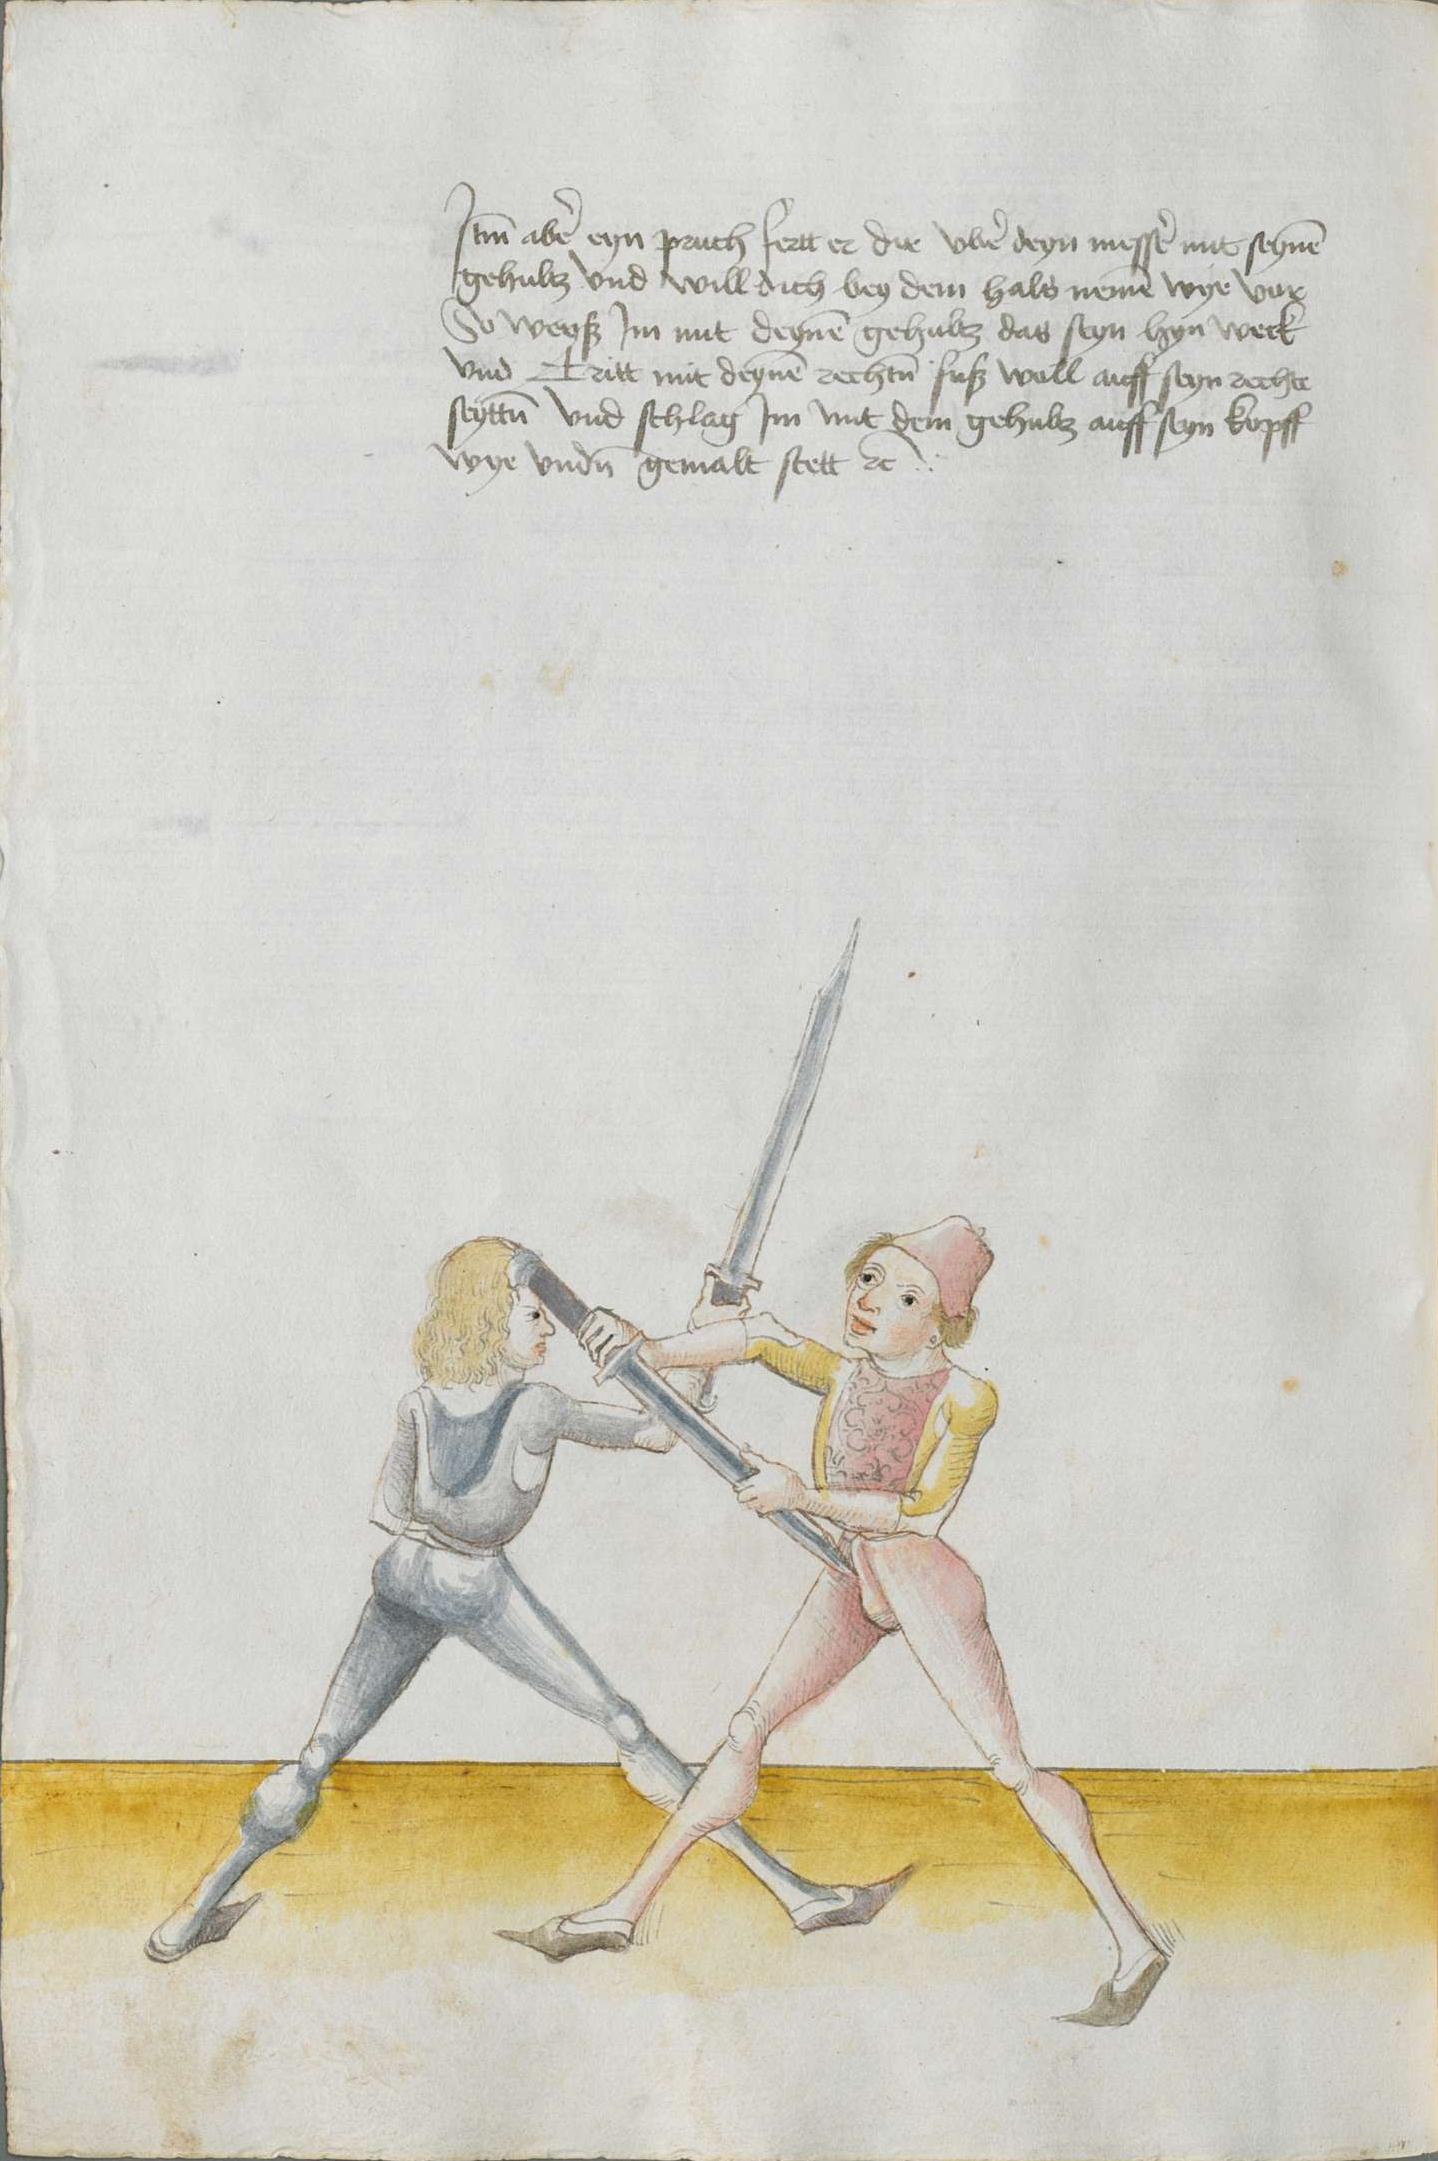 Itm̄ abe᷑ eyn pruch fertt er dir vbe᷑ deyn messe᷑ mit seynē
gehultz vnd will dich bey dem hals nemē wye vor
So weyß Im mit deynē gehultz das seyn hyn weck
vnd Tritt mit deynē rechtn̄ fuß woll auff seyn rechte
seyttn̄ vnd schlag Im mit dem gehultz auff seyn kopff
wye vndn̄ gemalt stett ꝛc